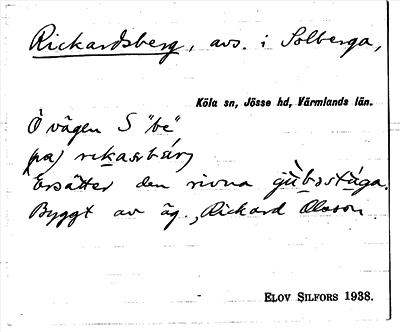 Rickardsberg, avs. i Solberga,
Köla sn, Jösse hd, Värmlands län.
Ö vägen S "be"
(på) rɩkasbárj
Ersätter den rivna
Byggt av äg., Rickard Olsson.
ELOV SILFORS 1938.